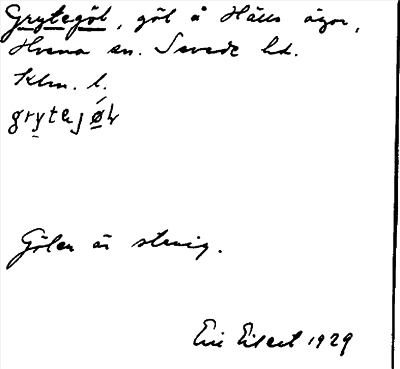 Grytegöl, göl å Hälls ägor,
Hvena sn. Sevede hd.
Klm. l.
grytejǿ̱l
Gölen är stenig.
Eric Eilert 1929